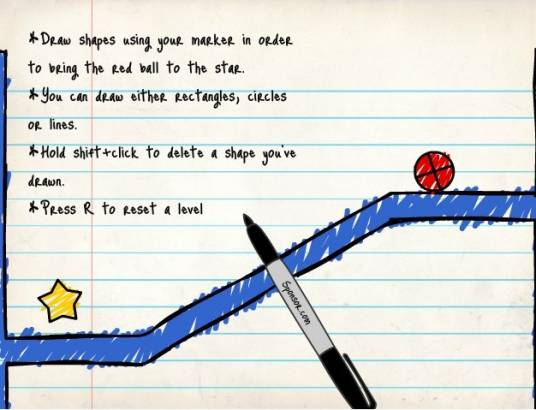 *Draw shapes using your marker in order
to bring the red ball to the star.
*You can draw either rectangles, circles
or lines.
*Hold shift+click to delete a shape you've
drawn.
*Press R to reset a level
Sponsor.com